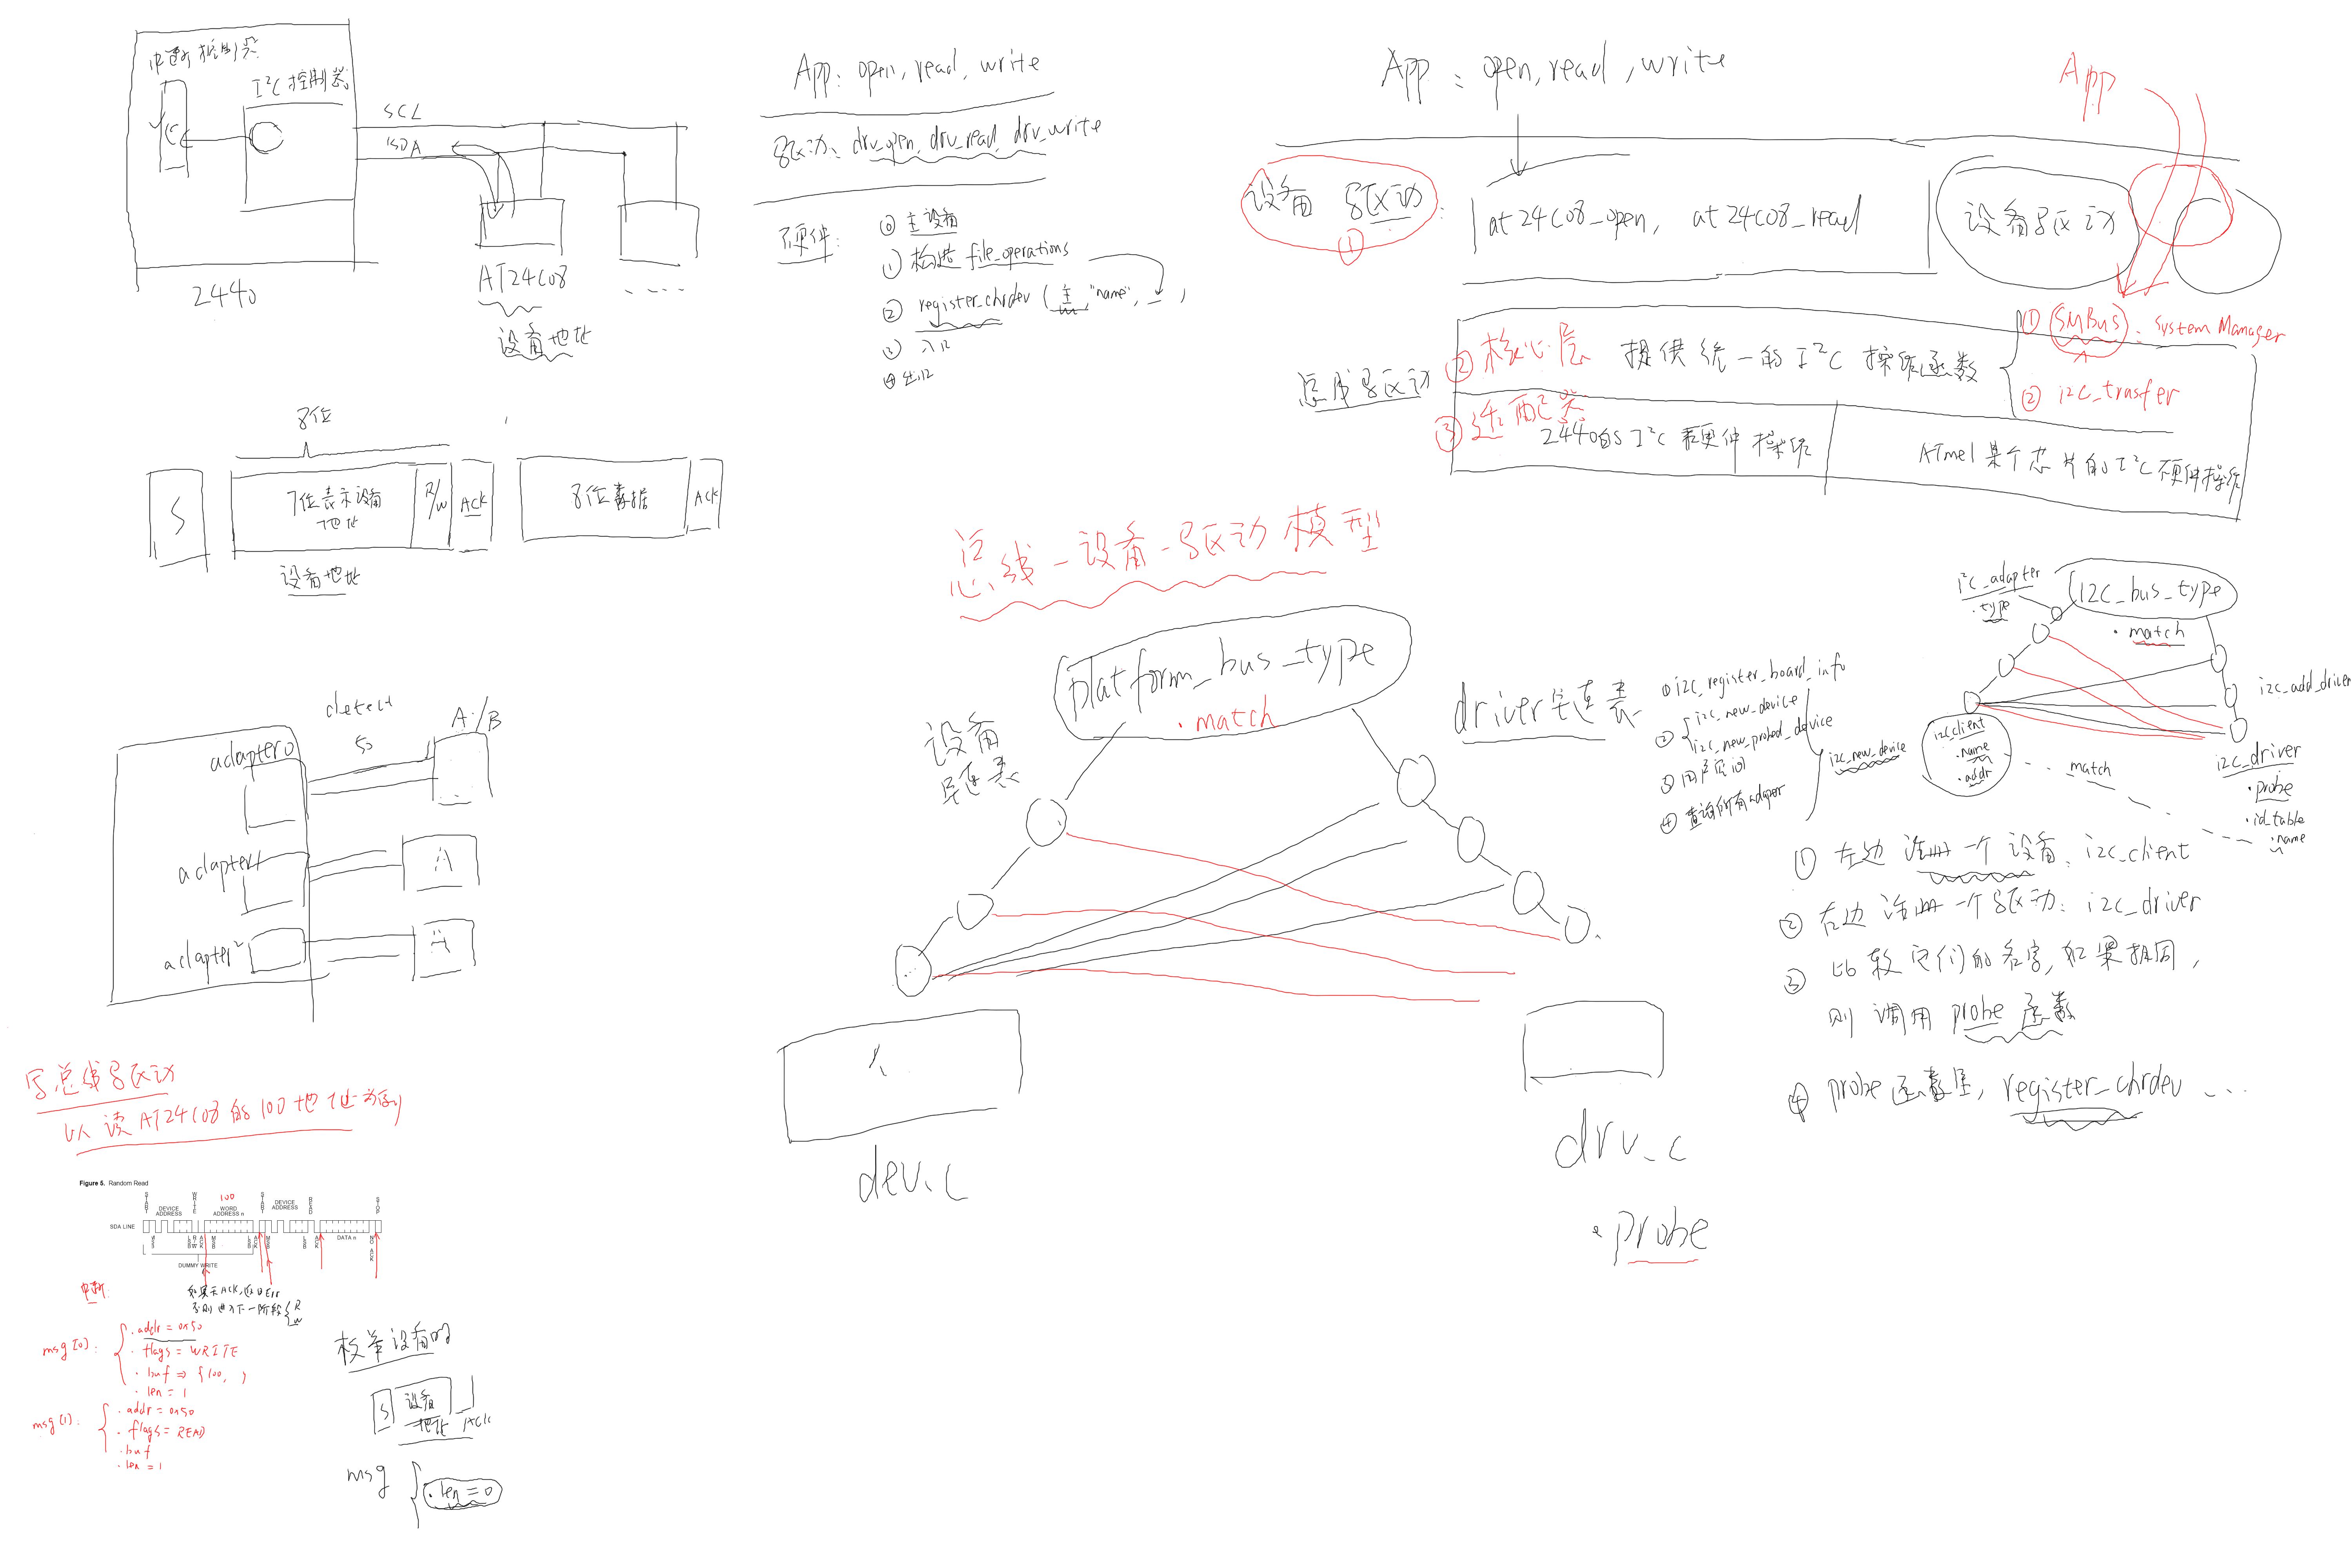 中断控制器
I²C控制器
SCL
SDA
2440
AT24C08
设备地址
....
8位
S
7位表示设备
地址
R/W
ACK
8位数据
ACK
设备地址
detect
50
A/B
adapter0
adapter1
A
adapter2
A
写总线驱动
以读AT24C08的100地址为例
Figure 5. Random Read
START
DEVICE ADDRESS
WRITE
100
WORD ADDRESS n
START
DEVICE ADDRESS
READ
STOP
SDA LINE
MSB
LSB
R/W
ACK
MSB
LSB
ACK
MSB
LSB
ACK
DATA n
NO ACK
DUMMY WRITE
中断:
如果无ACK,返回Err
否则进入下一阶段{R
W
msg[0]:
.addr = 0x50
.flags = WRITE
.buf => {100, }
.len = 1
msg[1]:
.addr = 0x50
.flags = READ
.buf
.len = 1
枚举设备时
S
设备
地址
Ack
msg
.len = 0
App: open, read, write
驱动: drv_open, drv_read, drv_write
硬件:
⓪ 主设备
① 构造 file_operations
② register_chrdev (主, "name", _ )
③ 入口
④ 出口
App: open, read, write
App
设备驱动:
①
at24c08_open, at24c08_read
设备驱动
总线驱动
② 核心层 提供统一的I²C操作函数
① SMBus: System Manager
② i2c_trasfer
③ 适配器
2440的I²C硬件操作
ATmel某个芯片的I²C硬件操作
总线-设备-驱动模型
platform_bus_type
.match
设备
链表
driver链表
dev.c
drv.c
.probe
① i2c_register_board_info
② i2c_new_device
i2c_new_probed_device
③ 用户空间
④ 查询所有adaper
i2c_new_device
i²c_adapter
.type
i2c_bus_type
.match
i2c_add_driver
i2c_client
.name
.addr
match
i2c_driver
.probe
.id_table
.name
① 左边注册一个设备: i2c_client
② 右边注册一个驱动: i2c_driver
③ 比较它们的名字,如果相同,
则调用probe函数
④ probe函数里, register_chrdev ...